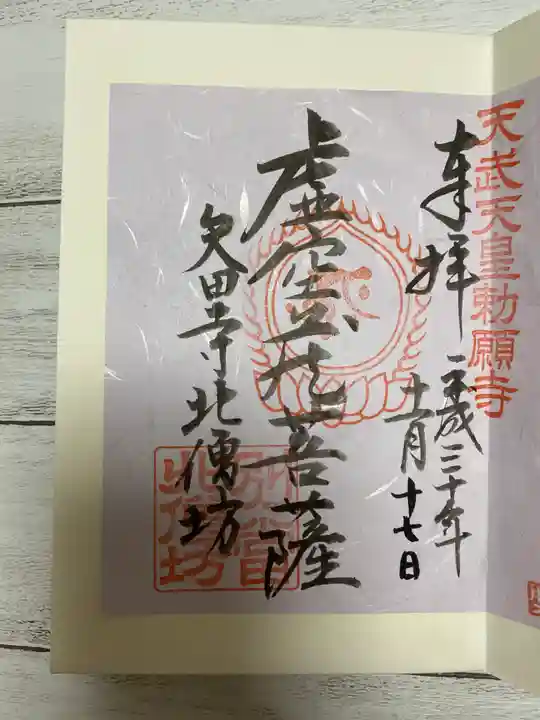 天武天皇勅願寺
奉拝
平成三十年
十一月十七日
虚空蔵菩薩
矢田寺北僧坊
北僧坊